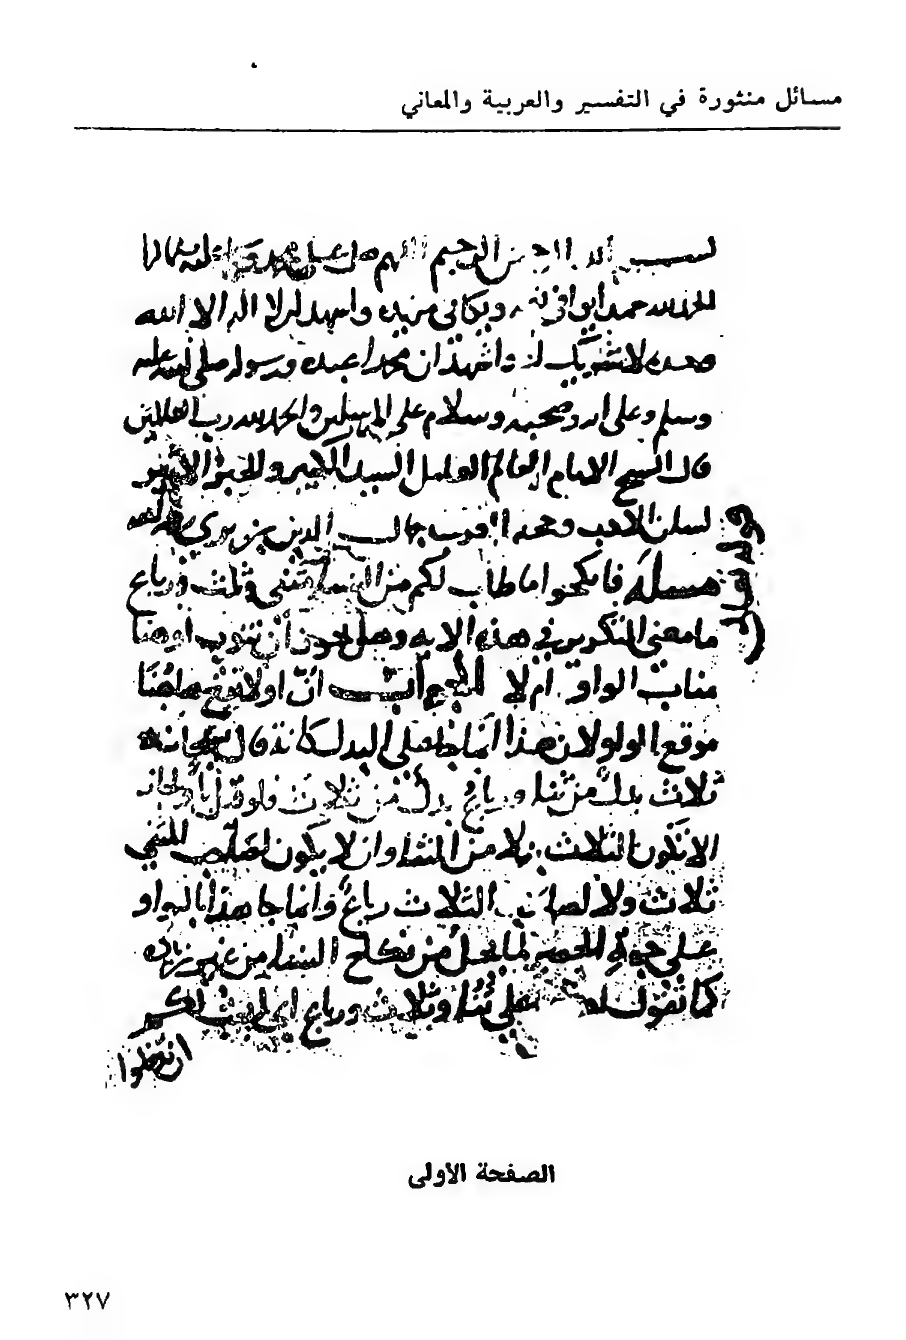 مسائل منثورة في التفسير والعربية والمعاني
بسم الله الرحمن الرحيم اللهم صل على محمد
الحمد لله حمدا يوافي نعمه ويكافي مزيده واشهد ان لا اله الا الله
وحده لا شريك له واشهد ان محمدا عبده ورسوله صلى الله عليه
وسلم وعلى اله وصحبه وسلام على المرسلين والحمد لله رب العالمين
قال الشيخ الامام العالم العامل السيد الكبير والحبر
لسان الادب وحجة العرب جمال الدين بن بري رحمه الله
مسئلة فانكحوا ما طاب لكم من النساء مثنى وثلث ورباع
ما معنى التكرير في هذه الاية وهل يجوز ان تنوب او هنا
مناب الواو ام لا الجواب ان او لا تقع هاهنا
موقع الواو لان هذا انما جا على البدل كانه قال
ثلاث بدل من ثنا ورباع بدل من ثلاث فلو قيل باو لجاز
الا تكون الثلاث بدلا من الثنا وان لا يكون لصاحب المثنى
ثلاث ولا لصاحب الثلاث رباع وانما جا هذا بالواو
على جهة الحصر لما يحل من نكاح النسا من غير زياده
كما تقول ثنا وثلاث ورباع
ان تدخلوا
قوله تعالى
الصفحة الأولى
٣٢٧